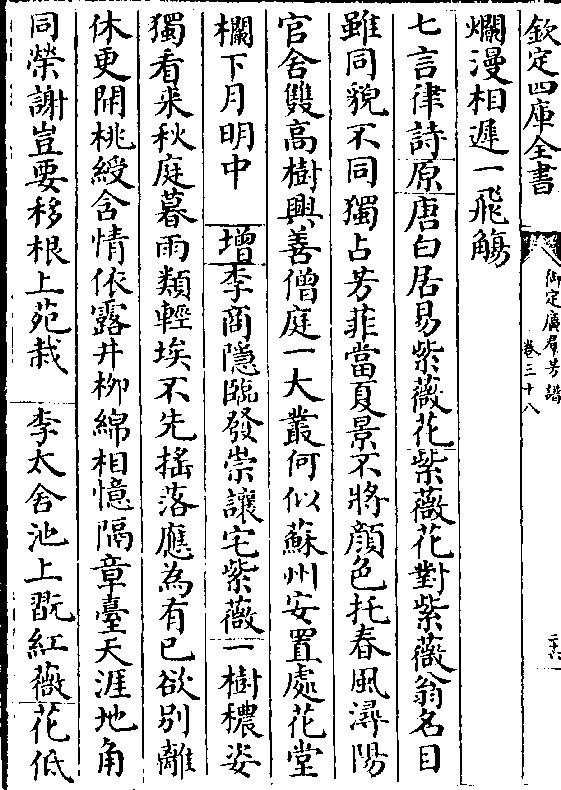 欽定四庫全書
御定廣羣芳譜
卷三十八
爛漫相遲一飛觴
七言律詩原唐白居易紫薇花紫薇花對紫薇翁名目
雖同貌不同獨占芳菲當夏景不將顔色托春風潯陽
官舍雙高樹興善僧庭一大叢何似蘇州安置處花堂
欄下月明中 增李商隱臨發崇讓宅紫薇一樹穠姿
獨看來秋庭暮雨類輕埃不先摇落應為有已欲别離
休更開桃綬含情依露井栁綿相憶隔章臺天涯地角
同榮謝豈要移根上苑栽 李太舍池上翫紅薇花低